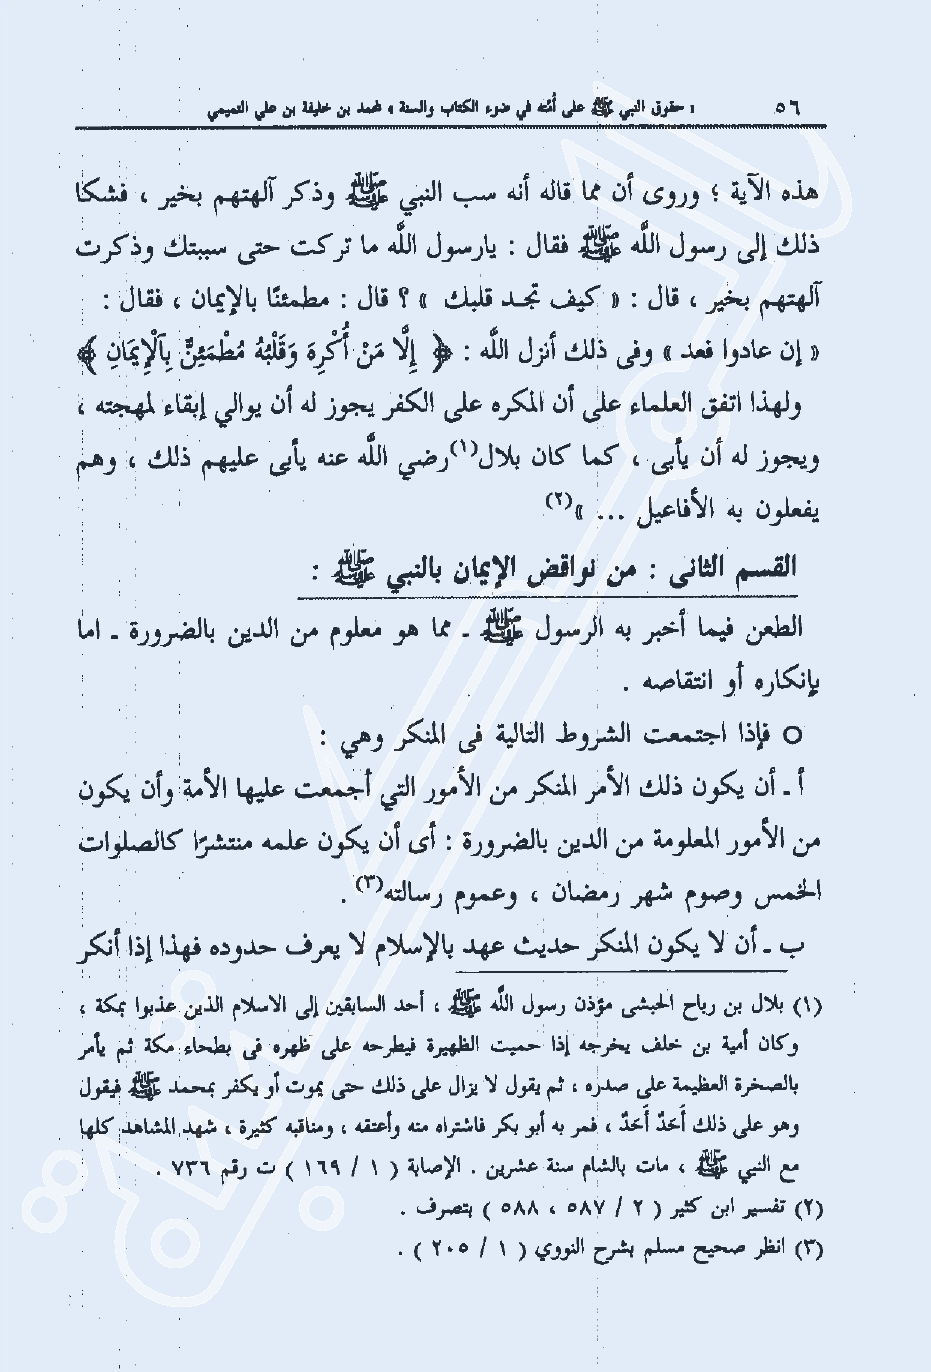 ٥٦ « حقوق النبي ﷺ على أمته في ضوء الكتاب والسنة » لمحمد بن خليفة بن علي التميمي
هذه الآية ؛ وروى أن مما قاله أنه سب النبي ﷺ وذكر آلهتهم بخير ، فشكا
ذلك إلى رسول الله ﷺ فقال : يارسول الله ما تركت حتى سببتك وذكرت
آلهتهم بخير ، قال : « كيف تجد قلبك » ؟ قال : مطمئنًا بالإيمان ، فقال :
« إن عادوا فعد » وفى ذلك أنزل الله : ﴿ إِلَّا مَنْ أُكْرِهَ وَقَلْبُهُ مُطْمَئِنٌّ بِآلْإِيمَانِ ﴾
ولهذا اتفق العلماء على أن المكره على الكفر يجوز له أن يوالي إبقاء لمهجته ،
ويجوز له أن يأبى ، كما كان بلال(١)رضي الله عنه يأبى عليهم ذلك ، وهم
يفعلون به الأفاعيل ... »(٢)
القسم الثانى : من نواقض الإيمان بالنبي ﷺ :
الطعن فيما أخبر به الرسول ﷺ ـ مما هو معلوم من الدين بالضرورة ـ اما
بإنكاره أو انتقاصه .
○ فإذا اجتمعت الشروط التالية فى المنكر وهي :
أ ـ أن يكون ذلك الأمر المنكر من الأمور التي أجمعت عليها الأمة وأن يكون
من الأمور المعلومة من الدين بالضرورة : أى أن يكون علمه منتشرًا كالصلوات
الخمس وصوم شهر رمضان ، وعموم رسالته(٣) .
ب ـ أن لا يكون المنكر حديث عهد بالإسلام لا يعرف حدوده فهذا إذا أنكر
(١) بلال بن رباح الحبشى مؤذن رسول الله ﷺ ، أحد السابقين إلى الاسلام الذين عذبوا بمكة ،
وكان أمية بن خلف يخرجه إذا حميت الظهيرة فيطرحه على ظهره فى بطحاء مكة ثم يأمر
بالصخرة العظيمة على صدره ، ثم يقول لا يزال على ذلك حتى يموت أو يكفر بمحمد ﷺ فيقول
وهو على ذلك أَحَدٌ أَحَدٌ ، فمر به أبو بكر فاشتراه منه وأعتقه ، ومناقبه كثيرة ، شهد المشاهد كلها
مع النبي ﷺ ، مات بالشام سنة عشرين . الإصابة ( ١ / ١٦٩ ) ت رقم ٧٣٦ .
(٢) تفسير ابن كثير ( ٢ / ٥٨٧ ، ٥٨٨ ) بتصرف .
(٣) انظر صحيح مسلم بشرح النووي ( ١ / ٢٠٥ ) .